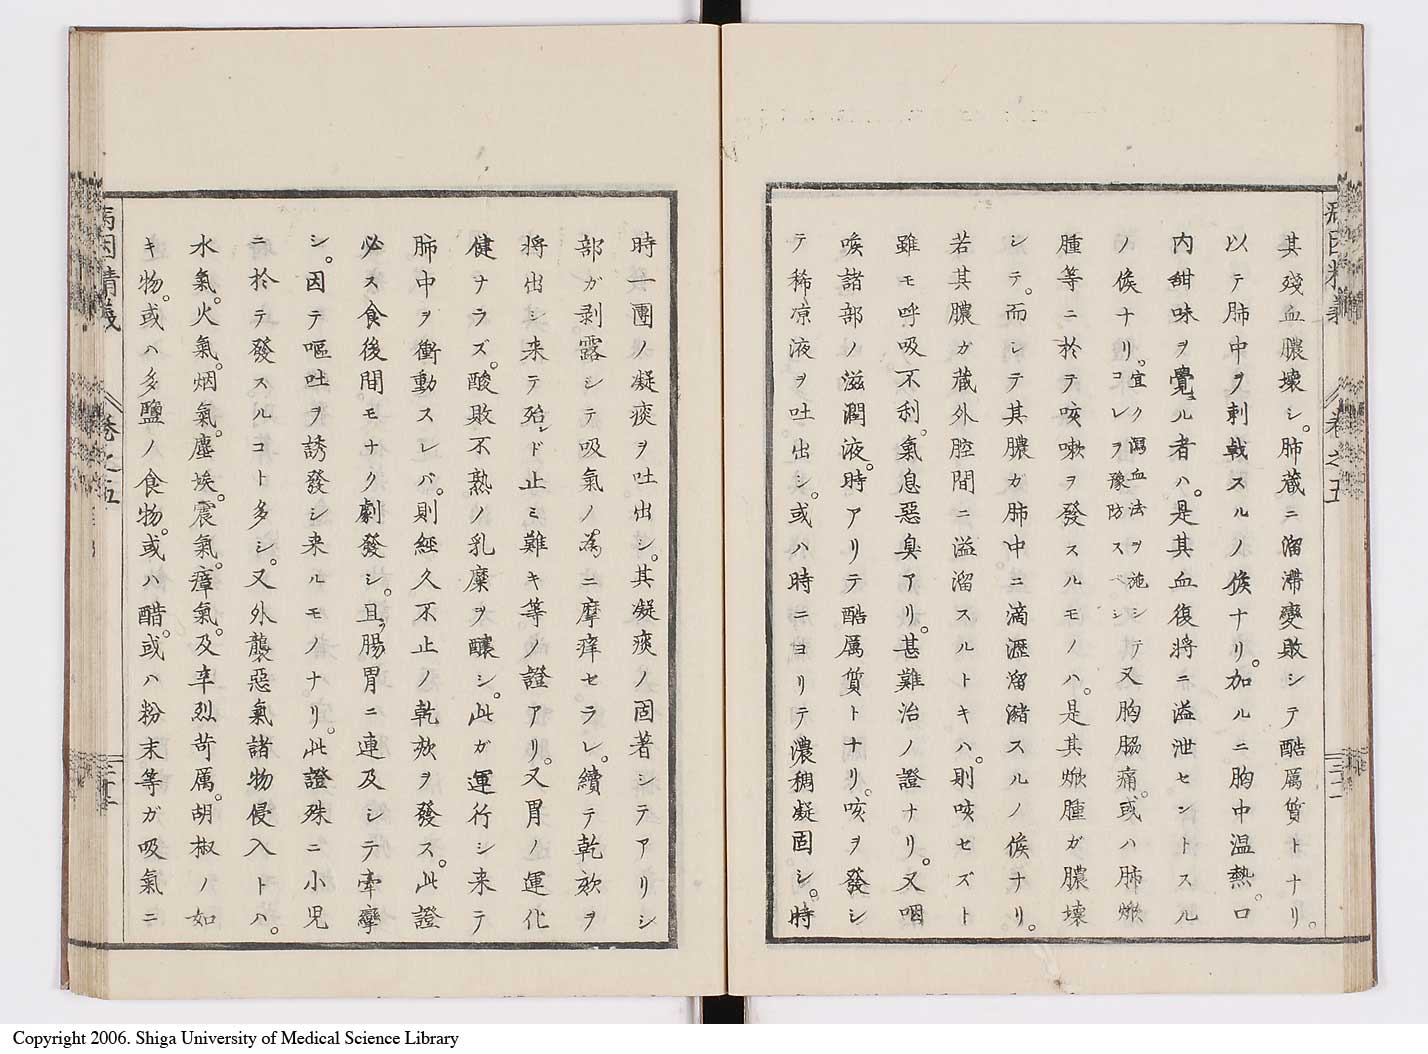 其殘血膿壞シ。肺藏ニ溜滯變敗シテ酷厲質トナリ。
以テ肺中ヲ刺戟スルノ候ナリ。加ルニ胸中温熱。口
内甜味ヲ覺ユル者ハ。是其血復將ニ溢泄セントスル
ノ候ナリ。宜ク瀉血法ヲ施シテコレヲ豫防スベシ又胸脇痛。或ハ肺焮
腫等ニ於テ咳嗽ヲ發スルモノハ。是其焮腫ガ膿壞
シテ。而シテ其膿ガ肺中ニ滴瀝溜瀦スルノ候ナリ。
若其膿ガ藏外腔間ニ溢溜スルトキハ。則咳セズト
雖モ呼吸不利。氣息惡臭アリ。甚難治ノ證ナリ。又咽
喉諸部ノ滋潤液。時アリテ酷厲質トナリ。咳ヲ發シ
テ稀凉液ヲ吐出シ。或ハ時ニヨリテ濃稠凝固シ。時
時一團ノ凝痰ヲ吐出シ。其凝痰ノ固著シテアリシ
部ガ剥露シテ吸氣ノ。為ニ摩痒セラレ。續テ乾欬ヲ
將出シ来テ殆ンド止ミ難キ等ノ證アリ。又胃ノ運化
健ナラズ。酸敗不熟ノ乳糜ヲ釀シ。此ガ運行シ来テ
肺中ヲ衝動スレバ。則經久不止ノ乾欬ヲ發ス。此證
必ス食後間モナク劇發シ。且ツ腸胃ニ連及シテ牽攣
シ。因テ嘔吐ヲ誘發シ来ルモノナリ。此證殊ニ小兒
ニ於テ發スルコト多シ。又外襲惡氣諸物侵入トハ。
水氣。火氣。烟氣。塵埃。震氣。瘴氣。及辛烈苛厲。胡椒ノ如
キ物。或ハ多鹽ノ食物。或ハ醋。或ハ粉末等ガ吸氣ニ
病因精義
卷之五
Copyright 2006. Shiga University of Medical Science Library